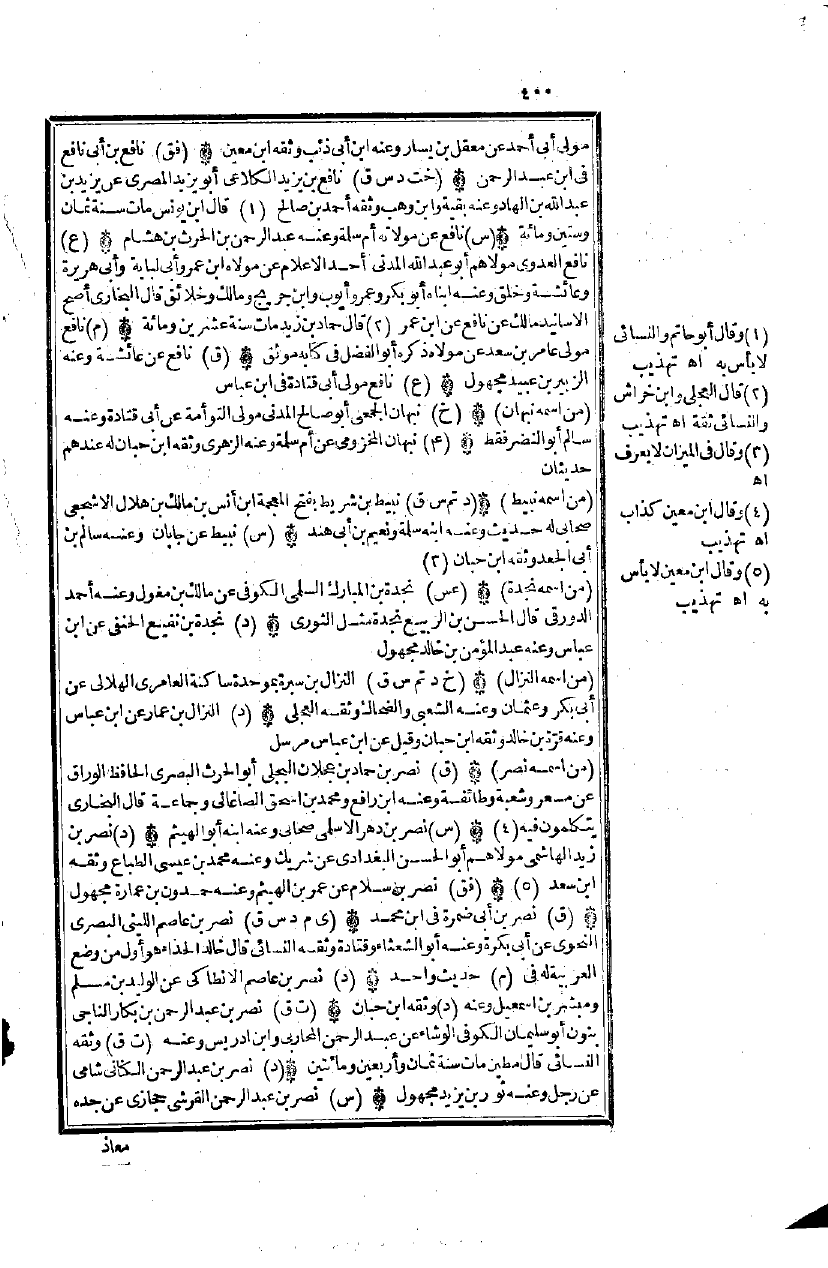 ٤٠٠
مولى أبى أحمد عن معقل بن يسار وعنه ابن أبى ذئب وثقه ابن معين ۞ (فق) نافع بن أبى نافع
فى ابن عبد الرحمن ۞ (خت د س ق) نافع بن يزيد الكلاعى أبو يزيد المصرى عن يزيد بن
عبدالله بن الهاد وعنه بقية وابن وهب وثقه أحمد بن صالح (١) قال ابن يونس مات سنة ثمان
وستين ومائة ۞ (س) نافع عن مولاته أم سلمة وعنه عبد الرحمن بن الحرث بن هشام ۞ (ع)
نافع العدوى مولاهم أبو عبد الله المدنى أحد الاعلام عن مولاه ابن عمر وأبى لبابة وأبى هريرة
وعائشة وخلق وعنه ابناه أبو بكر وعمر وأيوب وابن جريج ومالك وخلائق قال البخارى أصح
الاسانيد مالك عن نافع عن ابن عمر (٢) قال حماد بن زيد مات سنة عشرين ومائة ۞ (م) نافع
مولى عامر بن سعد عن مولاه ذكره أبو الفضل فى كتابه موثق ۞ (ق) نافع عن عائشة وعنه
الزبير بن عبيد مجهول ۞ (ع) نافع مولى أبى قتادة فى ابن عباس
(من اسمه نبهان) ۞ (خ) نبهان الجمعى أبو صالح المدنى مولى التوأمة عن أبى قتادة وعنه
سالم أبو النضر فقط ۞ (٤) نبهان المخزومى عن أم سلمة وعنه الزهرى وثقه ابن حبان له عندهم
حديثان
(من اسمه نبيط) ۞ (د تم س ق) نبيط بن شريط بفتح المعجمة ابن أنس بن مالك بن هلال الاشجعى
صحابى له حديث وعنه ابنه سلمة ونعيم بن أبى هند ۞ (س) نبيط عن جابان وعنه سالم بن
أبى الجعد وثقه ابن حبان (٣)
(من اسمه نجدة) ۞ (عس) نجدة بن المبارك السلمى الكوفى عن مالك بن مغول وعنه أحمد
الدورقى قال الحسن بن الربيع نجدة مثل الثورى ۞ (د) نجدة بن نفيع الحنفى عن ابن
عباس وعنه عبد المؤمن بن خالد مجهول
(من اسمه النزال) ۞ (خ د تم س ق) النزال بن سبرة بموحدة ساكنة العامرى الهلالى عن
أبى بكر وعثمان وعنه الشعبى والضحاك وثقه العجلى ۞ (د) النزال بن عمار عن ابن عباس
وعنه قرة بن خالد وثقه ابن حبان وقيل عن ابن عباس مرسل
(من اسمه نصر) ۞ (ق) نصر بن حماد بن عجلان البجلى أبو الحرث البصرى الحافظ الوراق
عن مسعر وشعبة وطائفة وعنه ابن رافع ومحمد بن اسحق الصاغانى وجماعة قال البخارى
يتكلمون فيه (٤) ۞ (س) نصر بن دهر الاسلمى صحابى وعنه ابنه أبو الهيثم ۞ (د) نصر بن
زيد الهاشمى مولاهم أبو الحسن البغدادى عن شريك وعنه محمد بن عيسى الطباع وثقه
ابن سعد (٥) ۞ (فق) نصر بن سلام عن عمر بن الهيثم وعنه حمدون بن عمارة مجهول
۞ (ق) نصر بن أبى ضمرة فى ابن محمد ۞ (ى م د س ق) نصر بن عاصم الليثى البصرى
النحوى عن أبى بكرة وعنه أبو الشعثاء وقتادة وثقه النسائى قال خالد الحذاء هو أول من وضع
العربية له فى (م) حديث واحد ۞ (د) نصر بن عاصم الانطاكى عن الوليد بن مسلم
ومبشر بن اسمعيل وعنه (د) وثقه ابن حبان ۞ (ت ق) نصر بن عبد الرحمن بن بكار الناجى
بنون أبو سليمان الكوفى الوشاء عن عبد الرحمن المحاربى وابن ادريس وعنه (ت ق) وثقه
النسائى قال مطين مات سنة ثمان وأربعين ومائتين ۞ (د) نصر بن عبد الرحمن الكنانى شامى
عن رجل وعنه ثور بن يزيد مجهول ۞ (س) نصر بن عبد الرحمن القرشى حجازى عن جده
معاذ
(١) وقال أبو حاتم والنسائى
لا بأس به اه تهذيب
(٢) قال العجلى وابن خراش
والنسائى ثقة اه تهذيب
(٣) وقال فى الميزان لا يعرف
اه
(٤) وقال ابن معين كذاب
اه تهذيب
(٥) وقال ابن معين لا بأس
به اه تهذيب